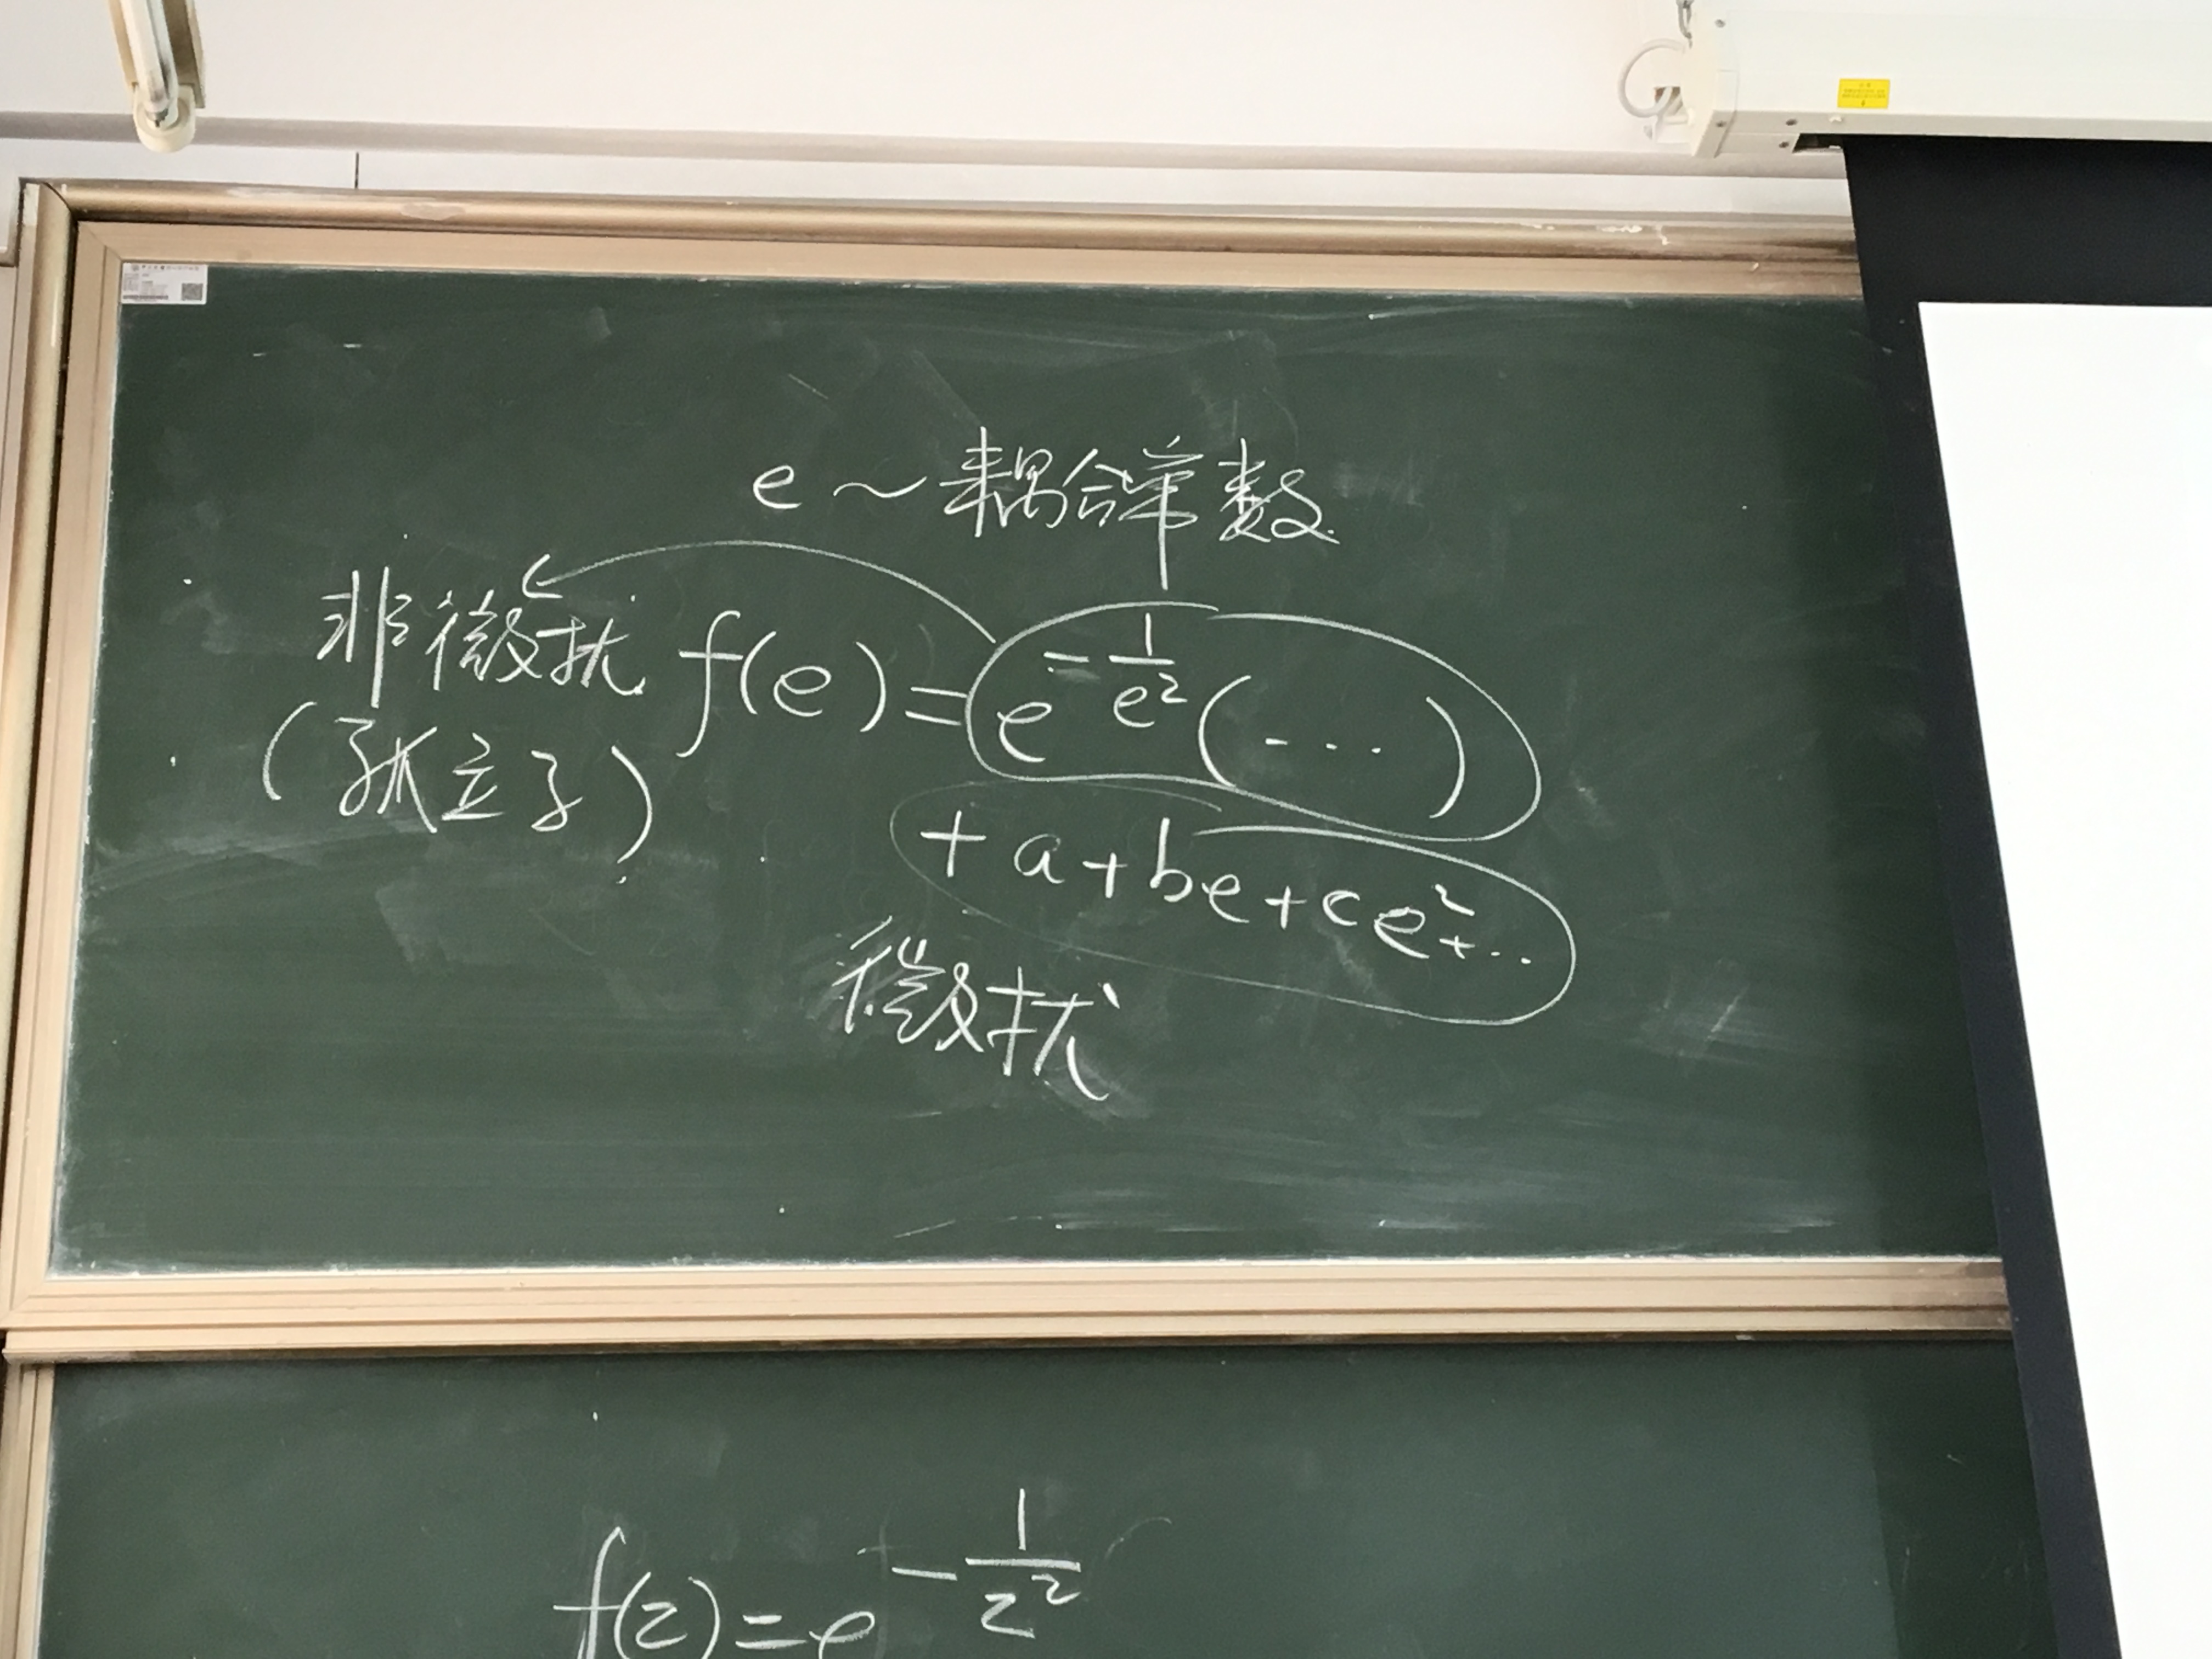 e ~ 耦合常数
非微扰 f(e) = e^{-\frac{1}{e^2}}(...)
(孤立子)
+ a + be + ce^2 + ...
微扰
f(z) = e^{-\frac{1}{z^2}}